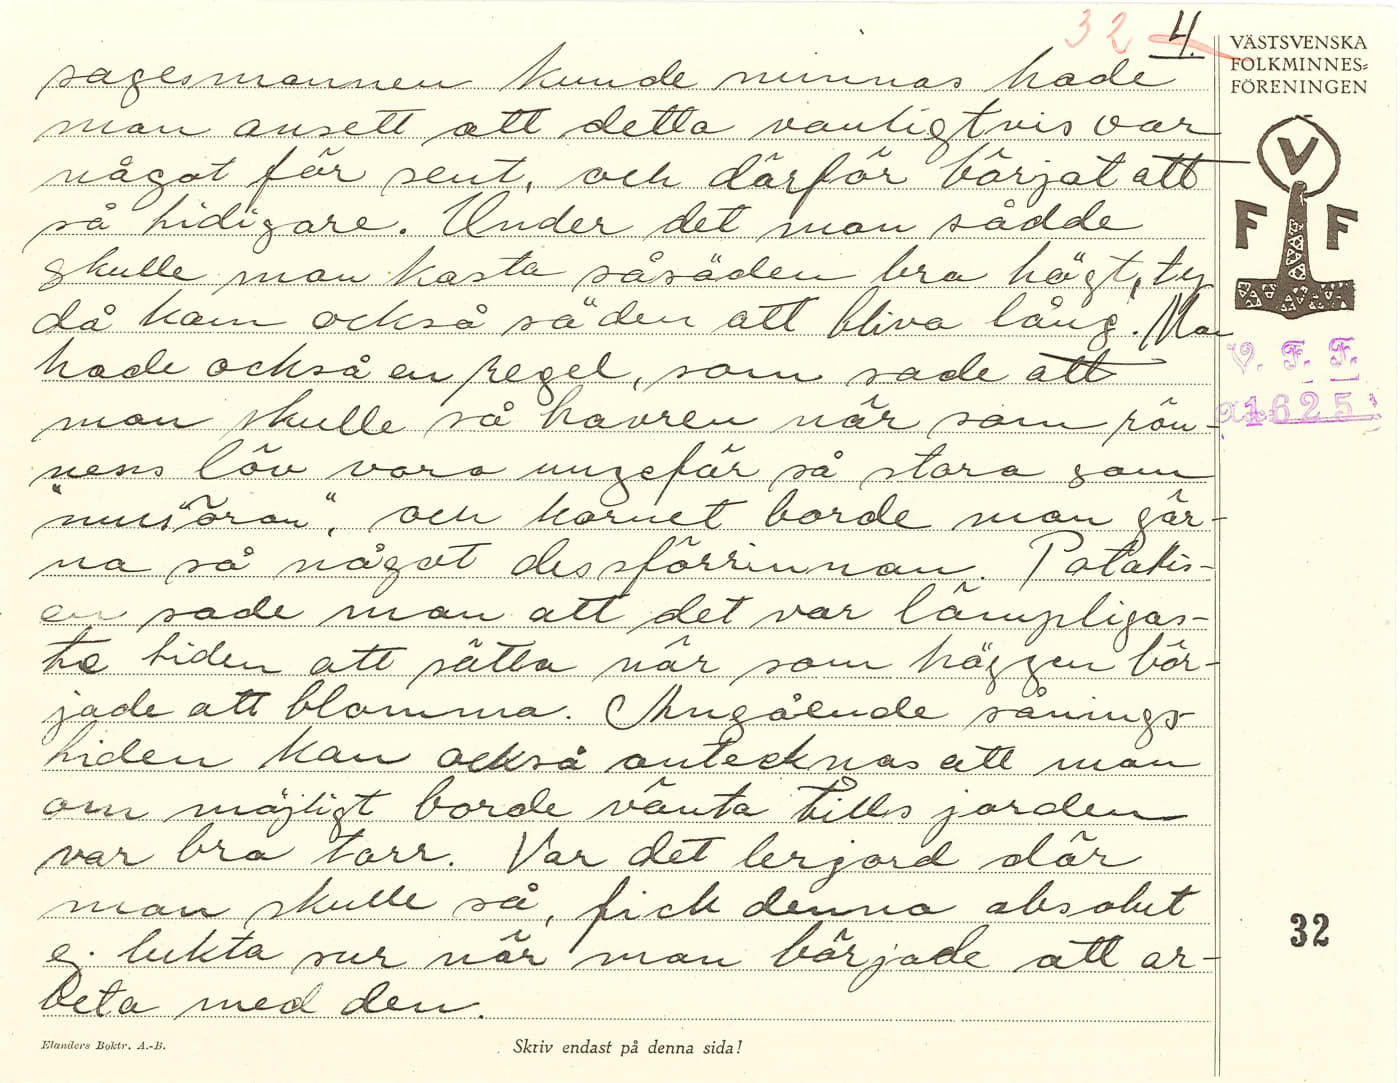 32 4.
VÄSTSVENSKA
FOLKMINNES=
FÖRENINGEN
V
F F
V. F. F.
1625
sagesmannen kunde minnas hade
man ansett att detta vanligtvis var
något för sent, och därför börjat att
så tidigare. Under det man sådde
skulle man kasta såsäden bra högt, ty
då kom också säden att bliva lång. Man
hade också en regel, som sade att
man skulle så havren när som rön-
nens löv voro ungefär så stora som
"musöron", och kornet borde man gär-
na så något dessförrinnan. Potatis-
en sade man att det var lämpligas-
te tiden att sätta när som häggen bör-
jade att blomma. Angående sånings
tiden kan också antecknas att man
om möjligt borde vänta tills jorden
var bra torr. Var det lerjord där
man skulle så, fick denna absolut
ej lukta sur när man började att ar-
beta med den.
32
Elanders Boktr. A.-B.
Skriv endast på denna sida!